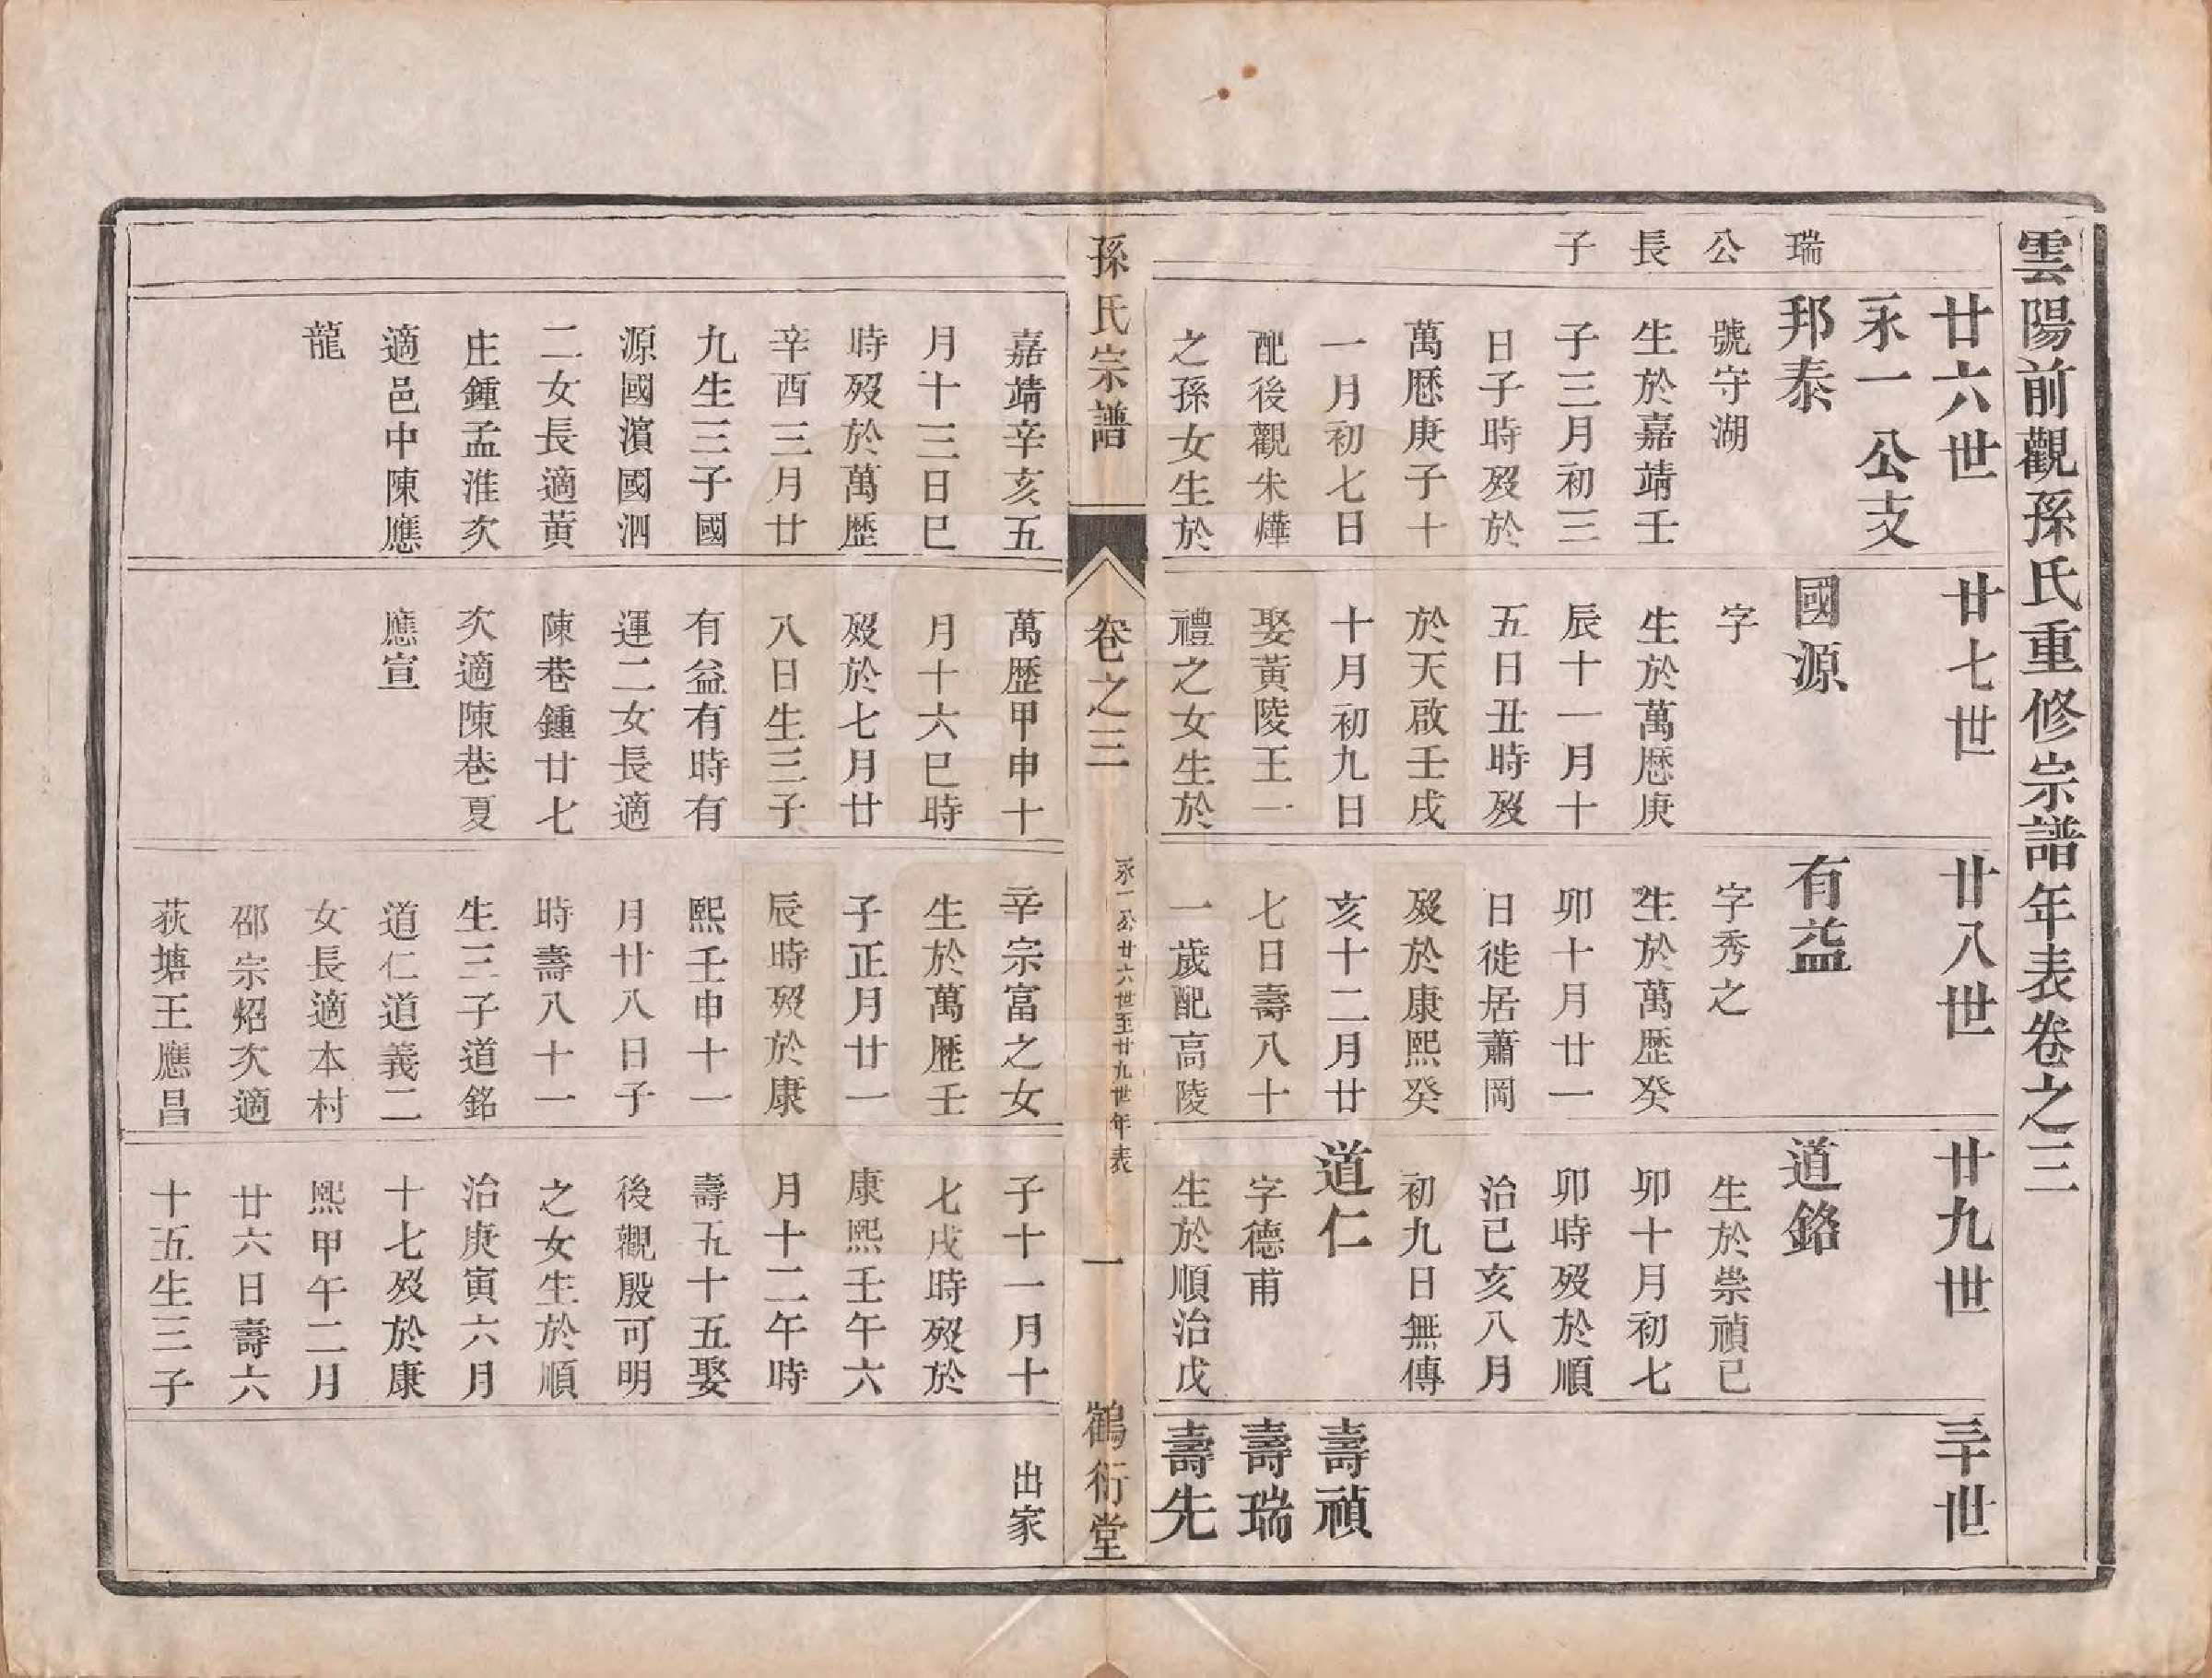 雲陽前觀孫氏重修宗譜年表卷之三
瑞
公
長
子
廿六世
永一公支
邦泰
號守湖
生於嘉靖壬
子三月初三
日子時歿於
萬厯庚子十
一月初七日
配後觀朱燁
之孫女生於
廿七世
國源
字
生於萬厯庚
辰十一月十
五日丑時歿
於天啟壬戌
十月初九日
娶黃陵王一
禮之女生於
廿八世
有益
字秀之
生於萬歷癸
卯十月廿一
日徙居蕭岡
歿於康熙癸
亥十二月廿
七日壽八十
一歲配高陵
廿九世
道銘
生於崇禎己
卯十月初七
卯時歿於順
治己亥八月
初九日無傳
道仁
字德甫
生於順治戊
三十世
壽禎
壽瑞
壽先
孫氏宗譜
卷之三
永一公廿六世至廿九世年表
一
鶴衍堂
嘉靖辛亥五
月十三日巳
時歿於萬歷
辛酉三月廿
九生三子國
源國濵國泗
二女長適黃
庄鍾孟淮次
適邑中陳應
龍
萬歷甲申十
月十六巳時
歿於七月廿
八日生三子
有益有時有
運二女長適
陳巷鍾廿七
次適陳巷夏
應宣
辛宗富之女
生於萬歷壬
子正月廿一
辰時歿於康
熙壬申十一
月廿八日子
時壽八十一
生三子道銘
道仁道義二
女長適本村
邵宗炤次適
荻塘王應昌
子十一月十
七戌時歿於
康熙壬午六
月十二午時
壽五十五娶
後觀殷可明
之女生於順
治庚寅六月
十七歿於康
熙甲午二月
廿六日壽六
十五生三子
出家